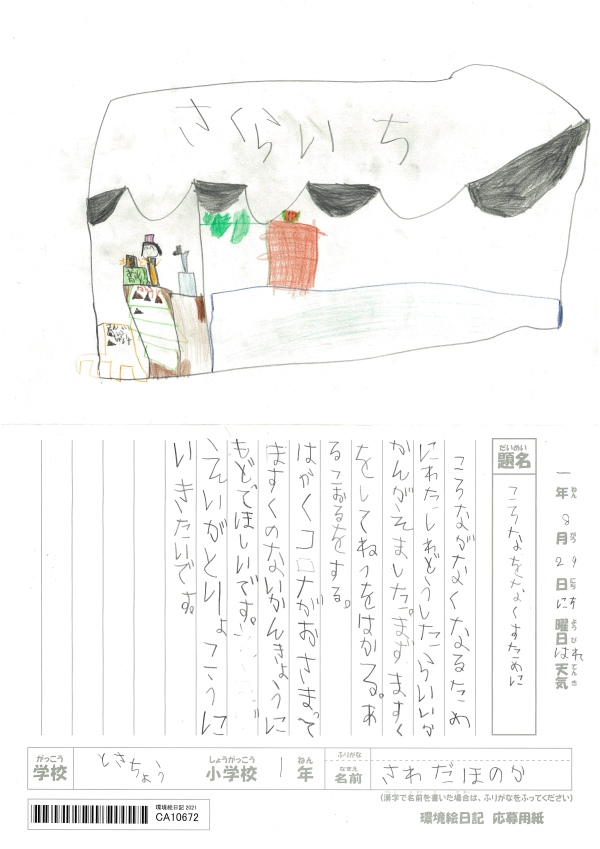 さくらいち
一年8月29日にち曜日はれ天気
ねん がつ にち ようび てんき
だいめい
題名
ころなをなくすために
ころながなくなるため
にわたしわどうしたらいいか
かんがえました。まずますく
をしてねつをはかる。あ
るこおるをする。
はやくコロナがおさまって
ますくのないかんきょうに
もどてほしいです。
えいがとりょこうに
いきたいです。
がっこう
学校
ときちょう
しょうがっこう
小学校
1
ねん
年
ふりがな
なまえ
名前
さわだほのか
(漢字で名前を書いた場合は、ふりがなをふってください)
環境絵日記 2021
CA10672
環境絵日記 応募用紙